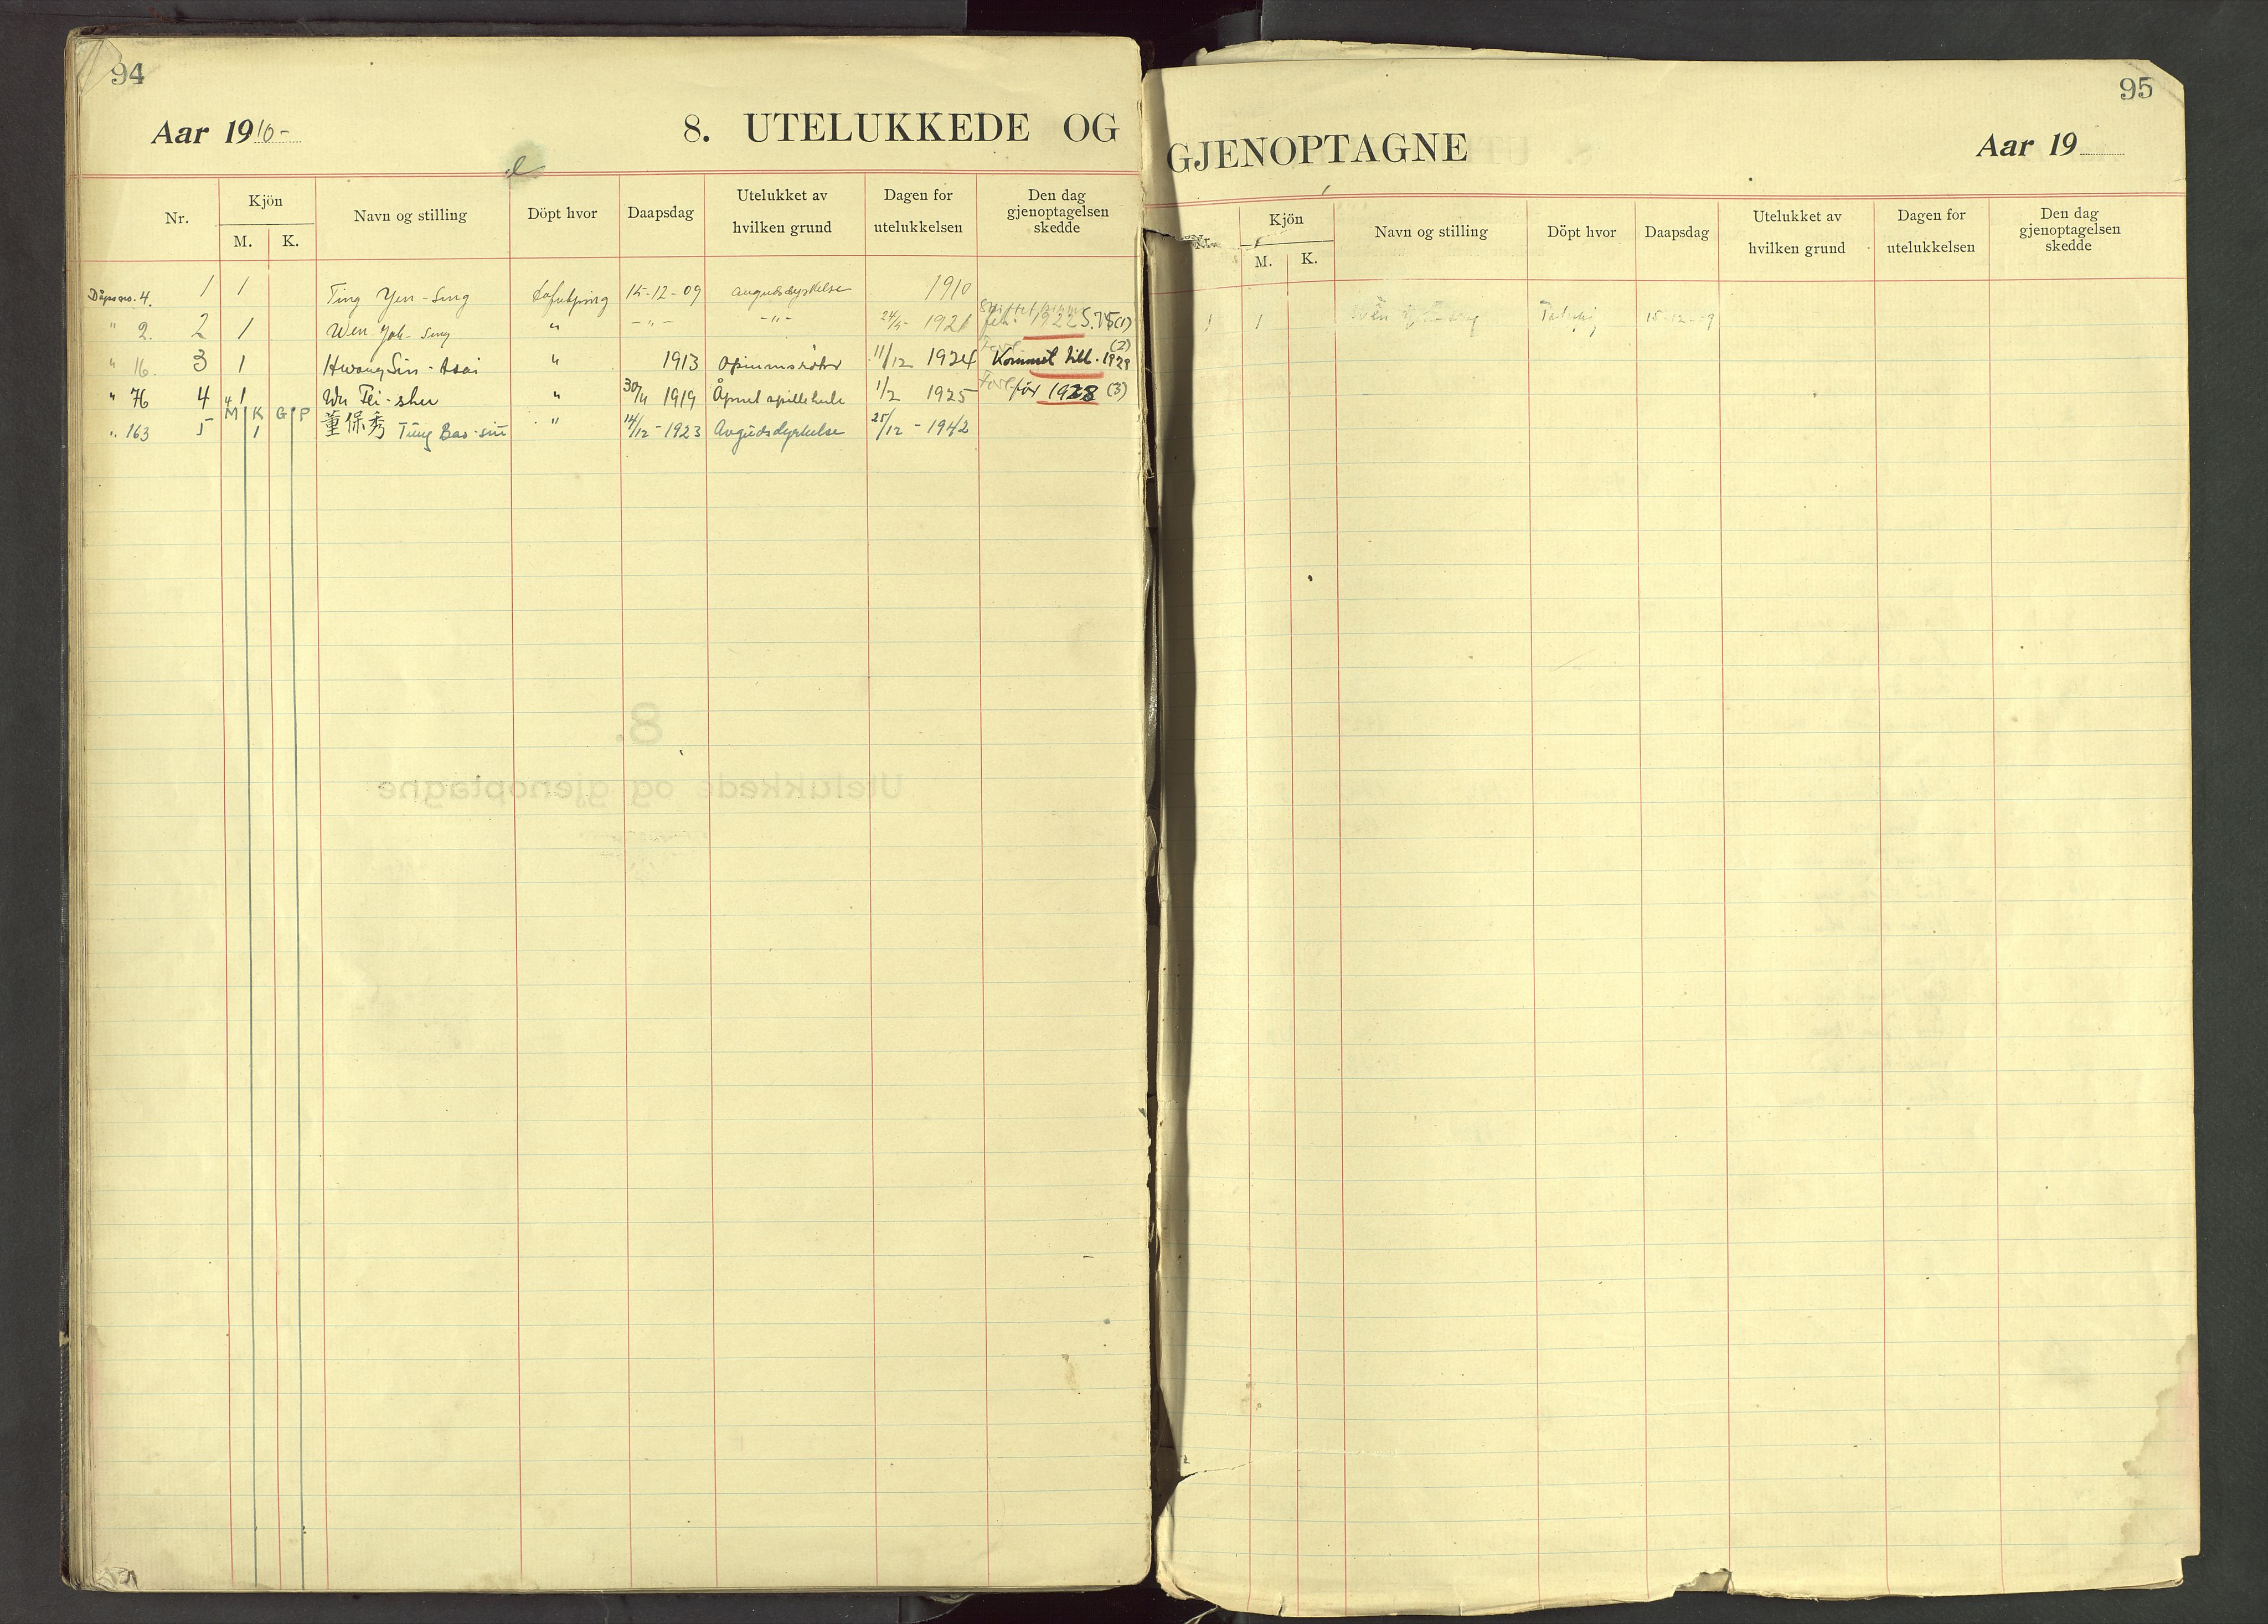 94
Aar 1910-
8. UTELUKKEDE OG
Nr.
Kjön
M.
K.
Navn og stilling
Döpt hvor
Daapsdag
Utelukket av
hvilken grund
Dagen for
utelukkelsen
Den dag
gjenoptagelsen
skedde
Dåpsno. 4. 1 1 Ting Yen-Sing 15-12-09 avgudsdyrkelse 1910
" 2. 2 1 Wen Yoh-Sing " -"- -"- 24/5- 1921 1922 S.75 (1)
" 16. 3 1 Hwang Sin-tsai " 1913 11/12 1924 Kommet till. 1929 (2)
" 76 4 1 Wu Fei-shu " 30/4 1919 Åpnet spillebule 1/2 1925 før 1928 (3)
M K G P
" 163 5 1 董保秀 Tung Bao-siu " 14/12-1923 Avgudsdyrkelse 25/12-1942
95
GJENOPTAGNE
Aar 19
Nr.
Kjön
M.
K.
Navn og stilling
Döpt hvor
Daapsdag
Utelukket av
hvilken grund
Dagen for
utelukkelsen
Den dag
gjenoptagelsen
skedde
1 1 15-12-09